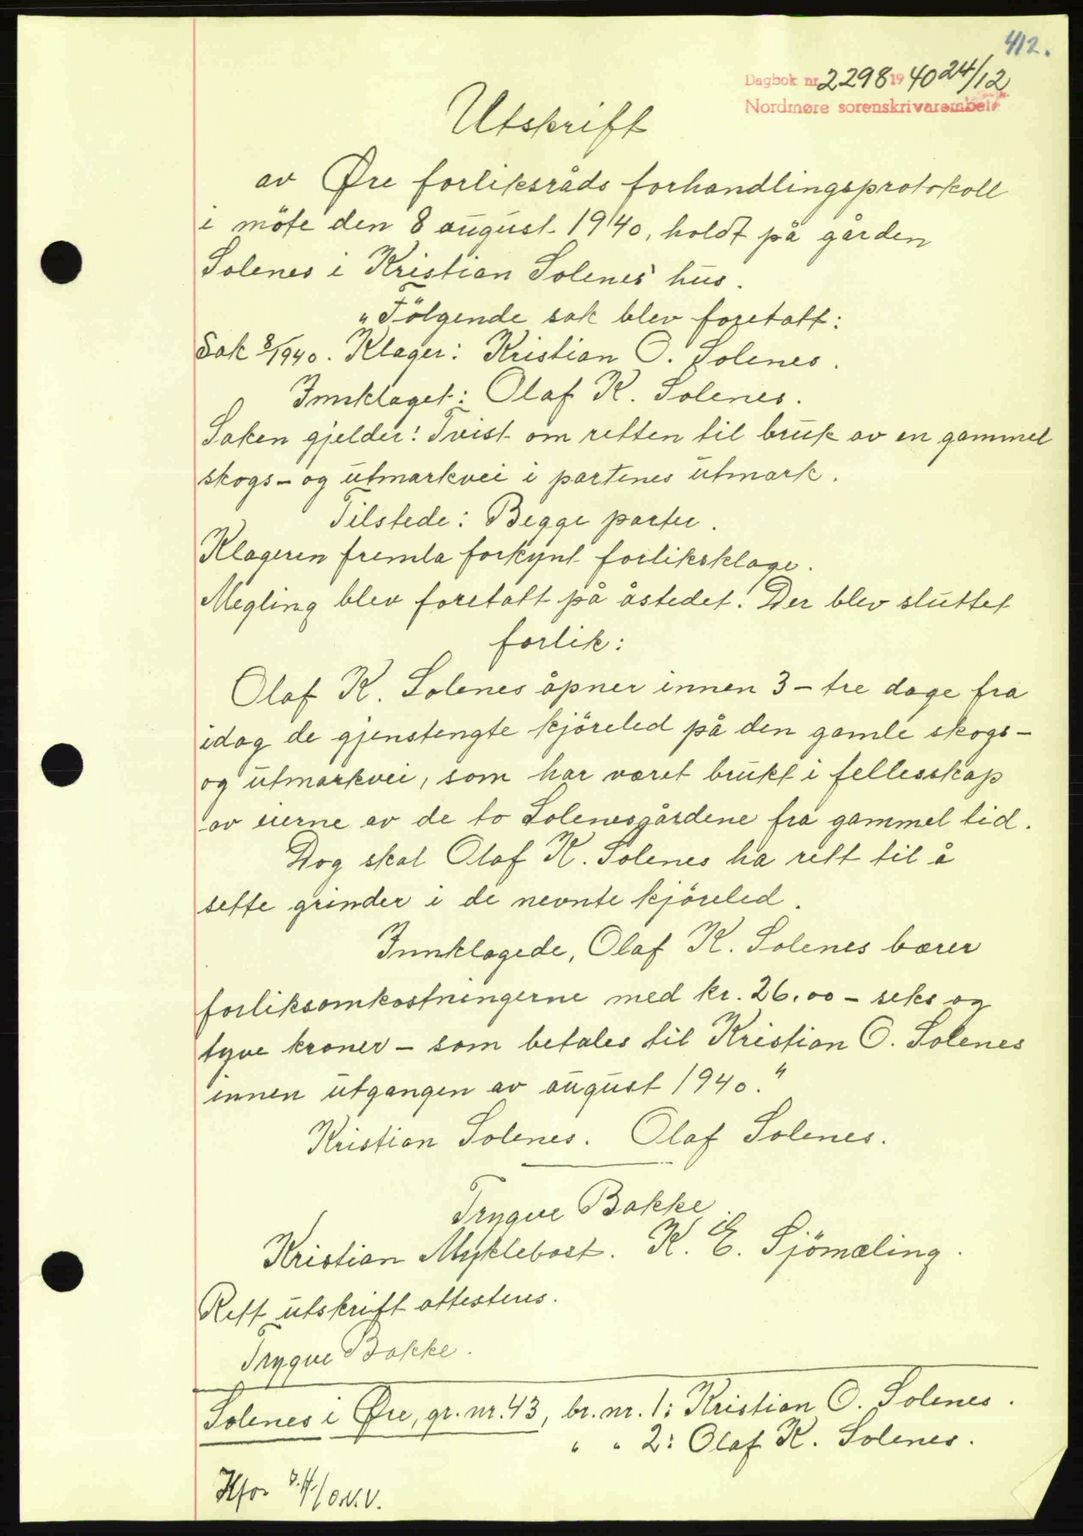 412.
Dagbok nr. 2298 1940 24/12
Nordmøre sorenskrivarembete
Utskrift
av Øre forliksråds forhandlingsprotokoll
i möte den 8 august 1940, holdt på gården
Solenes i Kristian Solenes' hus.
"Fölgende sak blev foretatt:
Sak 8/1940. Klager: Kristian O. Solenes.
Innklaget: Olaf K. Solenes.
Saken gjelder: Tvist om retten til bruk av en gammel
skogs- og utmarkvei i partenes utmark.
Tilstede: Begge parter.
Klageren fremla forkynt forliksklage.
Megling blev foretatt på åstedet. Der blev sluttet
forlik:
Olaf K. Solenes åpner innen 3 - tre dage fra
idag de gjenstengte kjöreled på den gamle skogs-
og utmarkvei, som har været brukt i fellesskap
av eierne av de to Solenesgårdene fra gammel tid.
Dog skal Olaf K. Solenes ha rett til å
sette grinder i de nevnte kjöreled.
Innklagede, Olaf K. Solenes bærer
forliksomkostningerne med kr. 26.00 - seks og
tyve kroner - som betales til Kristian O. Solenes
innen utgangen av august 1940."
Kristian Solenes. Olaf Solenes.
Trygve Bakke.
Kristian Myklebost. K. E. Sjömæling.
Rett utskrift attesteres.
Trygve Bakke.
Solenes i Øre, gr. nr. 43, br. nr. 1: Kristian O. Solenes.
" " 2: Olaf K. Solenes.